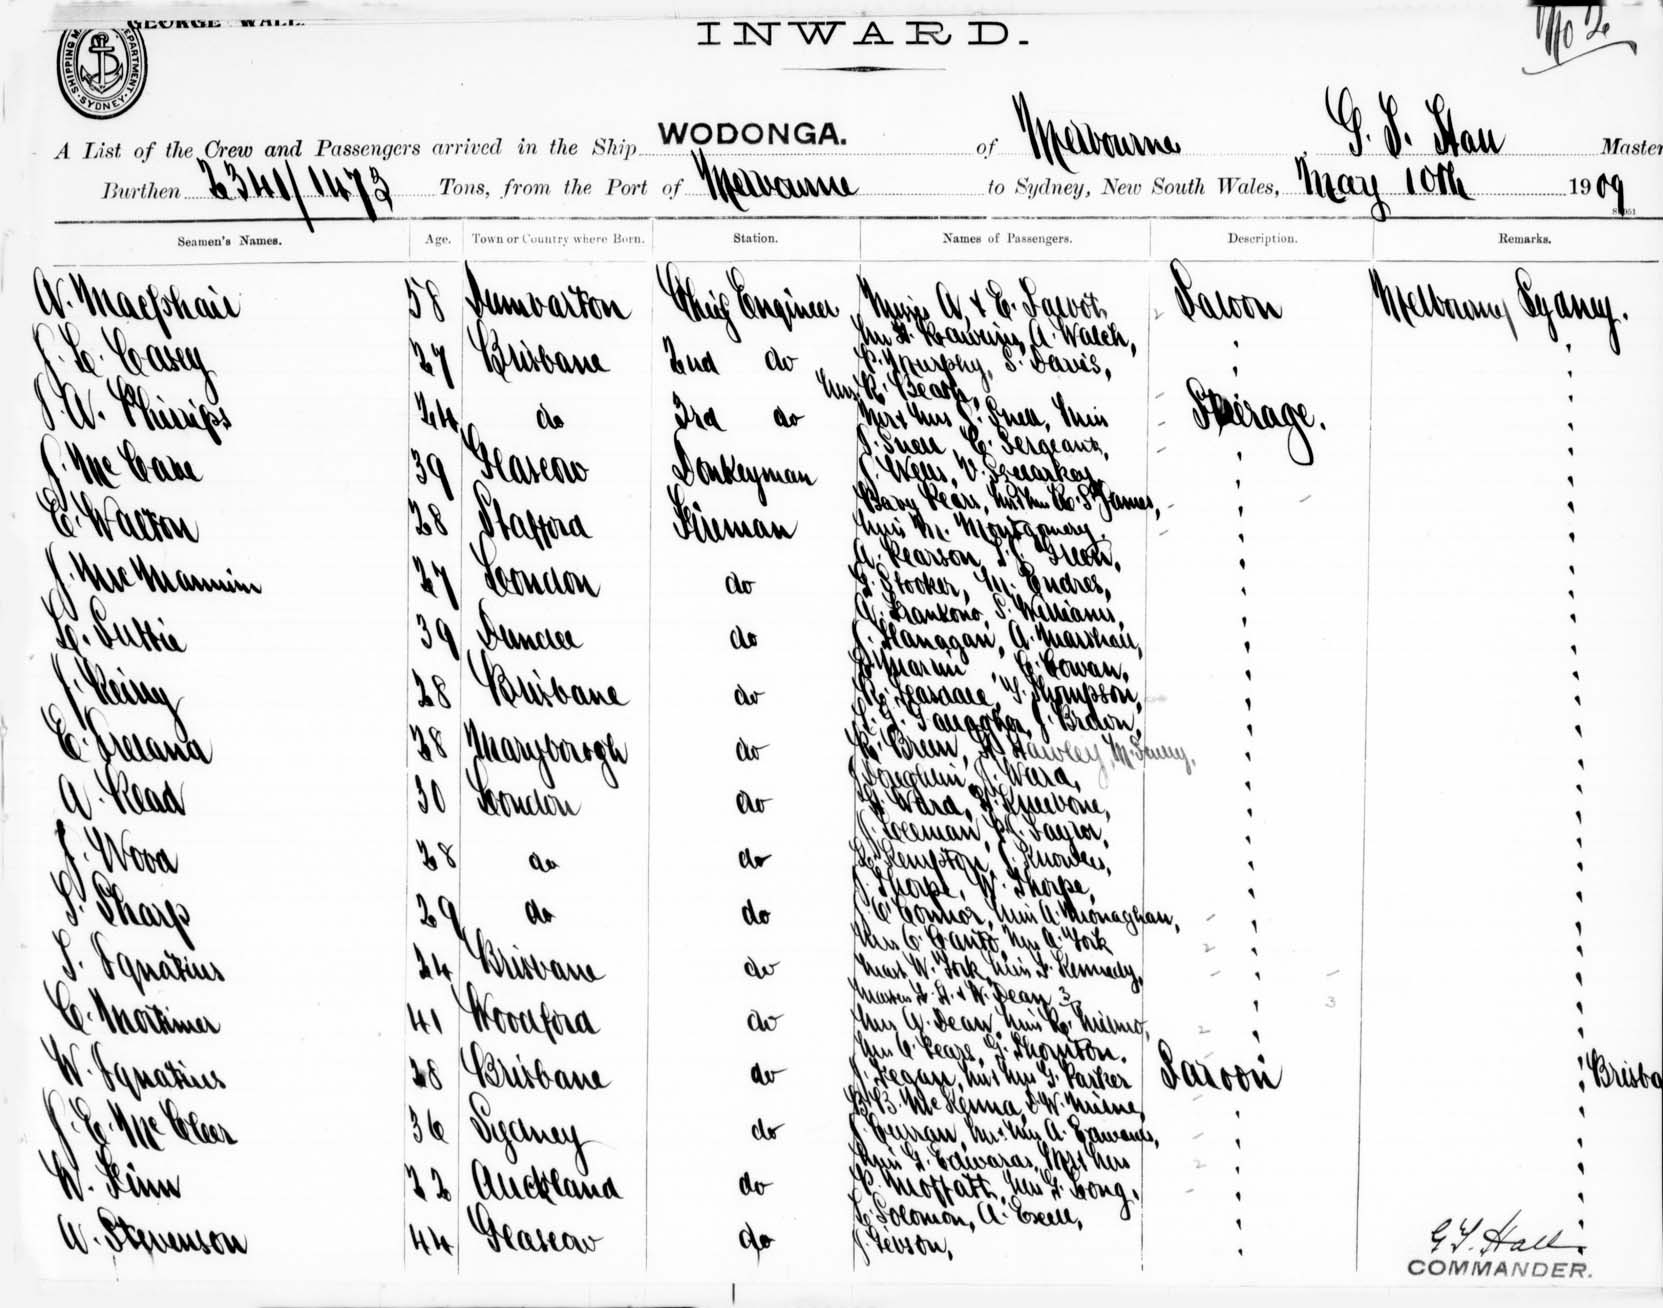 GEORGE WALL.
INWARD.
No 2
SHIPPING DEPARTMENT SYDNEY
A List of the Crew and Passengers arrived in the Ship WODONGA. of Melbourne, G. T. Hall Master
Burthen 2341/1473 Tons, from the Port of Melbourne to Sydney, New South Wales, May 10th 1909
Seamen's Names. Age. Town or Country where Born. Station. Names of Passengers. Description. Remarks.
A. Macphail 58 Dumbarton Chief Engineer Misses A. & E. Talbot, Saloon Melbourne/Sydney.
A. Walch,
J. L. Casey 27 Brisbane 2nd do P. Murphy, S. Davis,
J. A. Phillips 24 do 3rd do Mr & Mrs J. Snell, Miss Steerage.
J. Snell, C. Sergeant,
J. McCane 39 Glasgow Donkeyman J. Wells,
Baby Pears, Mr & Mrs R. St James,
E. Walton 28 Stafford Fireman Miss M. Montgomery.
A. Pearson, Green,
J. McMannim 27 London do G. Stooker, M. Endres,
S. Williams,
L. Suttie 39 Dundee do J. Flanagan, A. Marshall,
Martin, C. Cowan,
J. Reilly 28 Brisbane do R. Teasdale, T. Thompson,
Gallagher, J. Brown,
E. Ireland 28 Maryborogh do R. Breen, H. Hawley,
J. Ward,
A. Read 30 London do Ward,
J. Coleman, Taylor,
J. Wood 28 do do Kempton, J. Knowles,
J. Thorpe, W. Thorpe,
S. Sharp 29 do do J. O'Connor, Miss A. Monaghan,
Mrs A. York
S. Ignatius 24 Brisbane do Mast W. York, Miss F. Kennedy,
Masters & W. Dean 3
C. Mortimer 41 Woodford do Mrs A. Dean, Miss R. Milne,
Mrs A. Pears, G. Thornton.
W. Ignatius 28 Brisbane do J. Fegan, Mr & Mrs G. Parker Saloon Brisba
B. B. McKenna, W. Milne,
J. E. McCleer 36 Sydney do J. Curran, Mr & Mrs A. Edwards,
Miss G. Edwards, Mr & Mrs
W. Finn 22 Auckland do P. Moffatt, Miss G. Long.
L. Solomon, A. Exell,
A. Stevenson 44 Glasgow do J. Gibson,
G. T. Hall
COMMANDER.